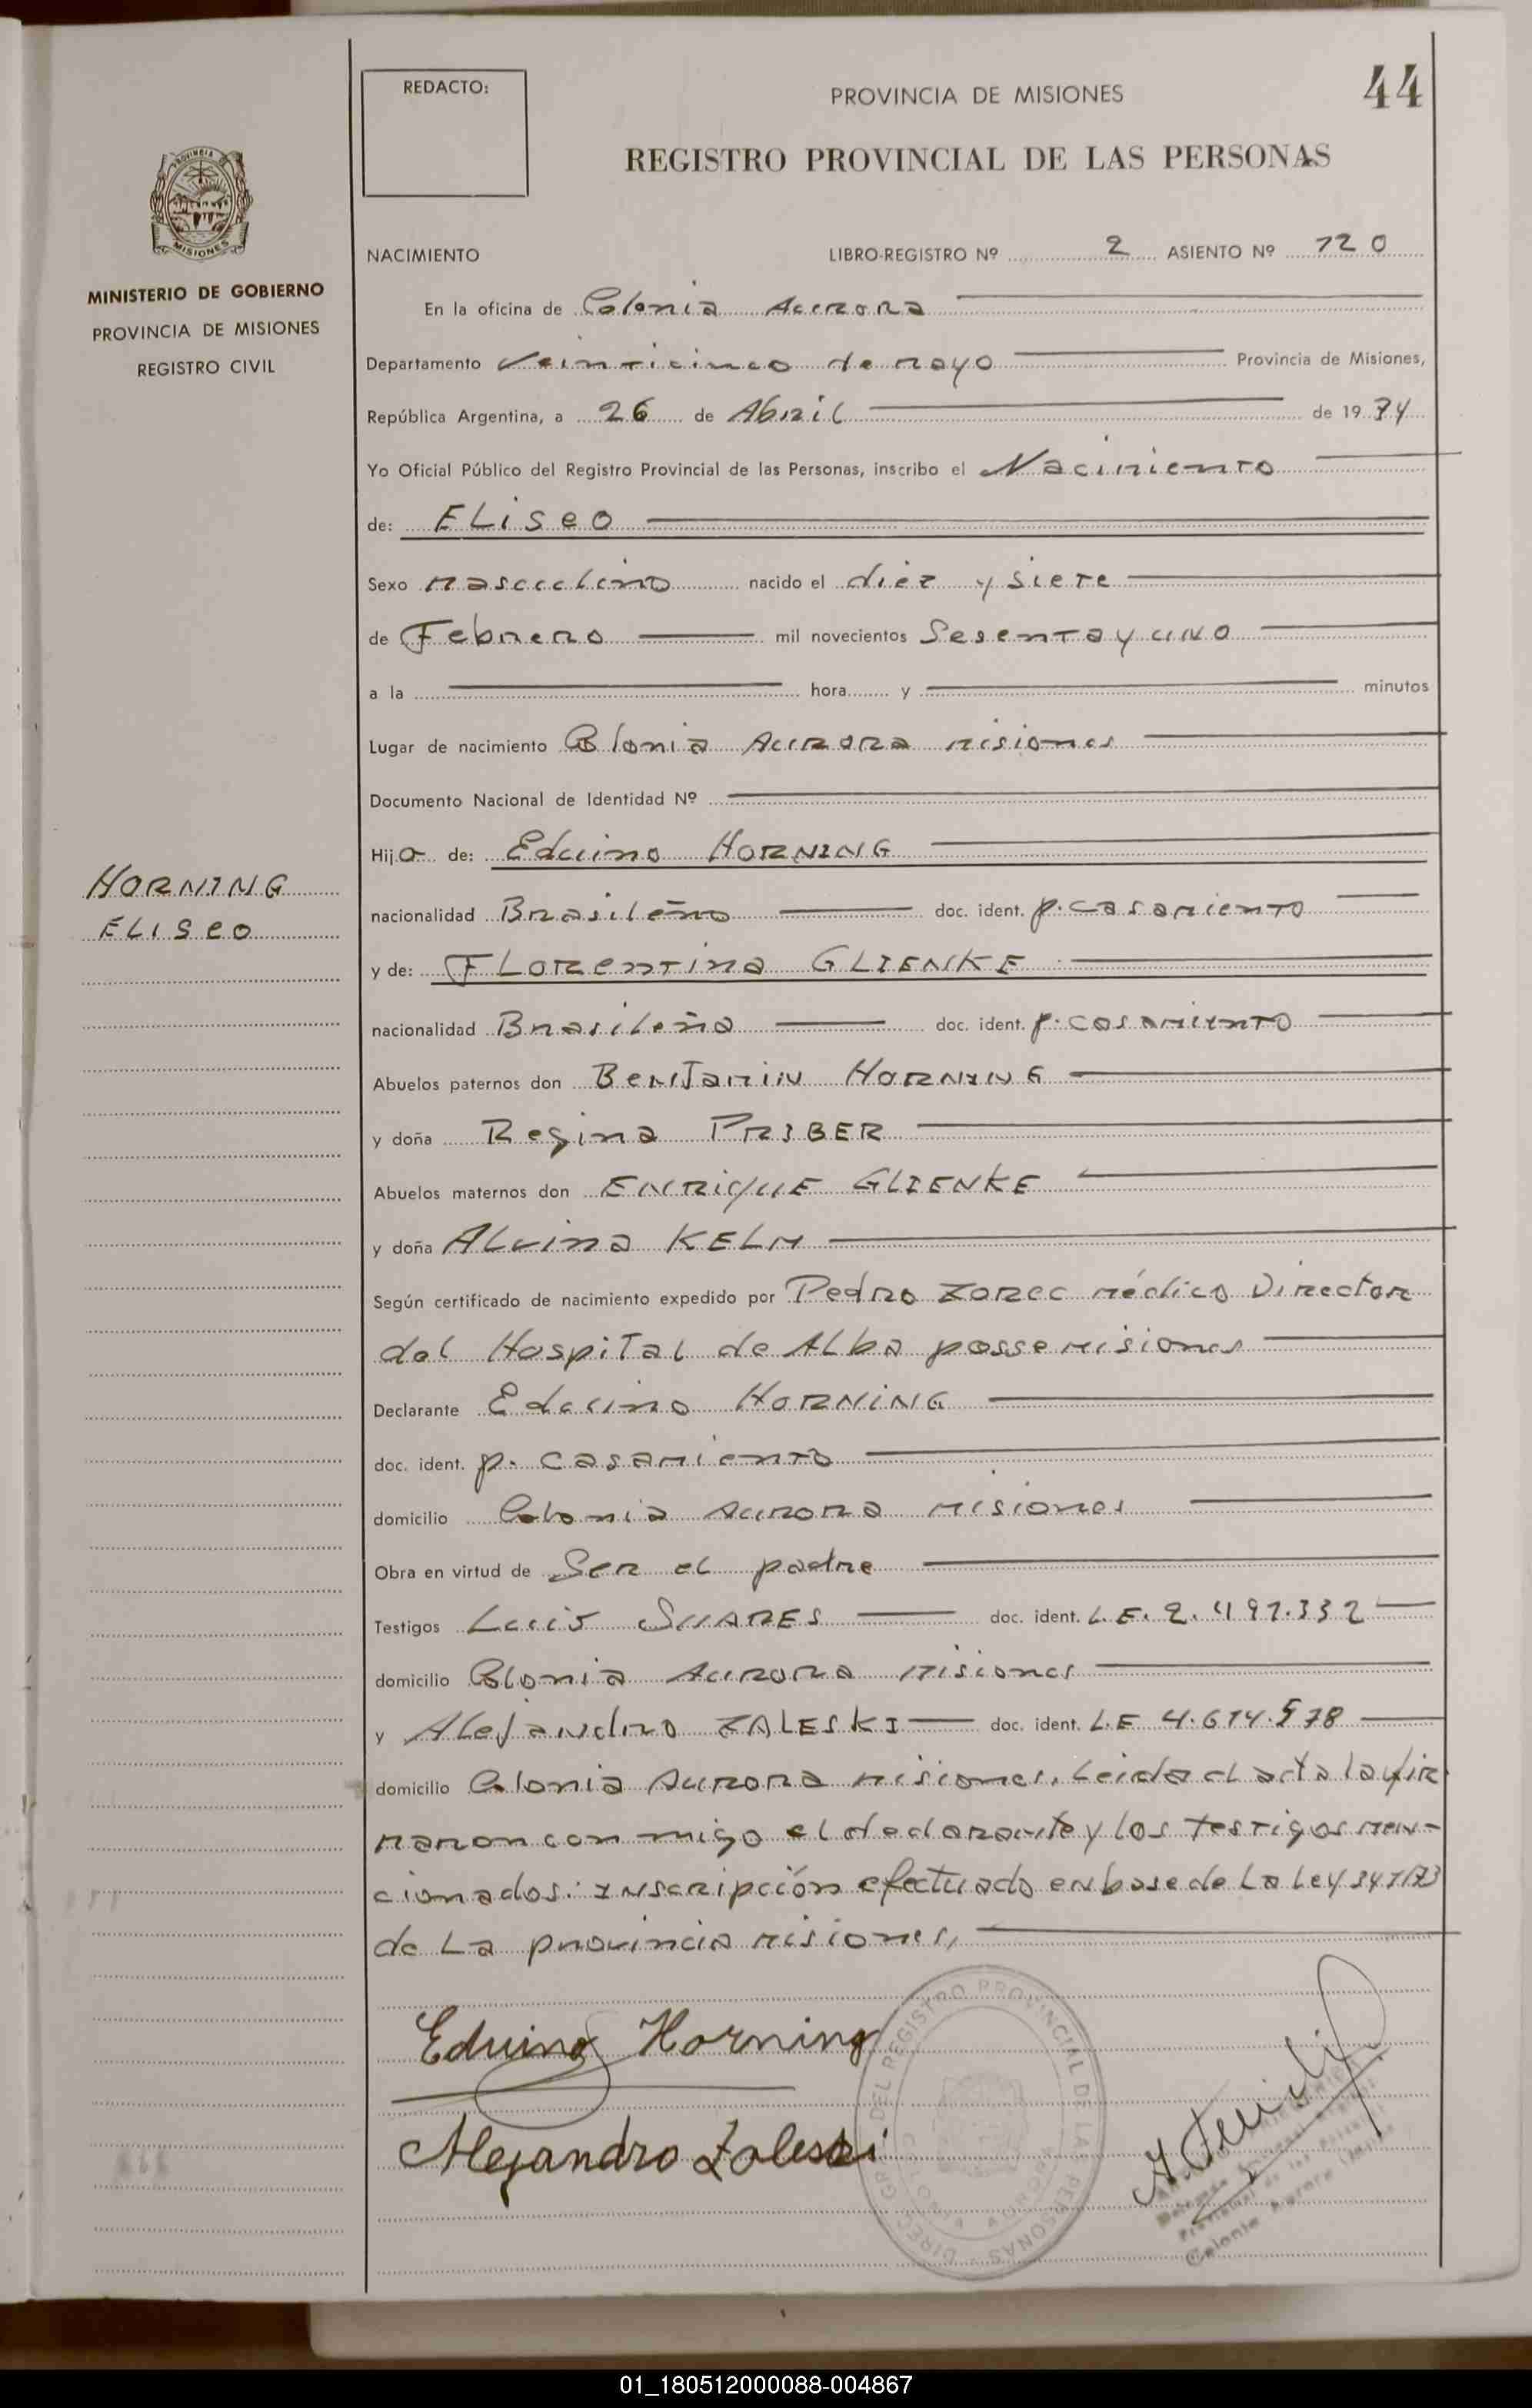 REDACTO:
PROVINCIA DE MISIONES
44
REGISTRO PROVINCIAL DE LAS PERSONAS
PROVINCIA DE
MISIONES
MINISTERIO DE GOBIERNO
PROVINCIA DE MISIONES
REGISTRO CIVIL
NACIMIENTO LIBRO-REGISTRO Nº 2 ASIENTO Nº 120
En la oficina de Colonia Aurora
Departamento Veinticinco de mayo Provincia de Misiones,
República Argentina, a 26 de Abril de 1974
Yo Oficial Público del Registro Provincial de las Personas, inscribo el Nacimiento
de: ELiseo
Sexo masculino nacido el diez y siete
de Febrero mil novecientos Sesenta y uno
a la hora y minutos
Lugar de nacimiento Colonia Aurora misiones
Documento Nacional de Identidad Nº
Hijo de: Eduino HORNING
HORNING
ELISEO
nacionalidad Brasileño doc. ident. p. casamiento
y de: FLorentina GLIENKE
nacionalidad Brasileña doc. ident. p. casamiento
Abuelos paternos don BenJamin HORNING
y doña Regina PRIBER
Abuelos maternos don ENRiqUE GLIENKE
y doña ALvina KELM
Según certificado de nacimiento expedido por Pedro Zorec médico Director
del Hospital de ALba posse misiones
Declarante Eduino HORNING
doc. ident. p. casamiento
domicilio Colonia Aurora misiones
Obra en virtud de Ser el padre
Testigos Luis SUARES doc. ident. L.E. 2.497.332
domicilio Colonia Aurora misiones
y ALejandro ZALESKI doc. ident. L.E 4.614.578
domicilio Colonia Aurora misiones. Leida el acta la fir
maron con migo el declarante y los testigos men-
cionados: Inscripción efectuado en base de La Ley 347/73
de La provincia misiones,
Eduino Horning
Alejandro Zaleski
DIREC. GRAL. DEL REGISTRO PROVINCIAL DE LAS PERSONAS
COLONIA AURORA
Provincial de las
Colonia Aurora
01_180512000088-004867